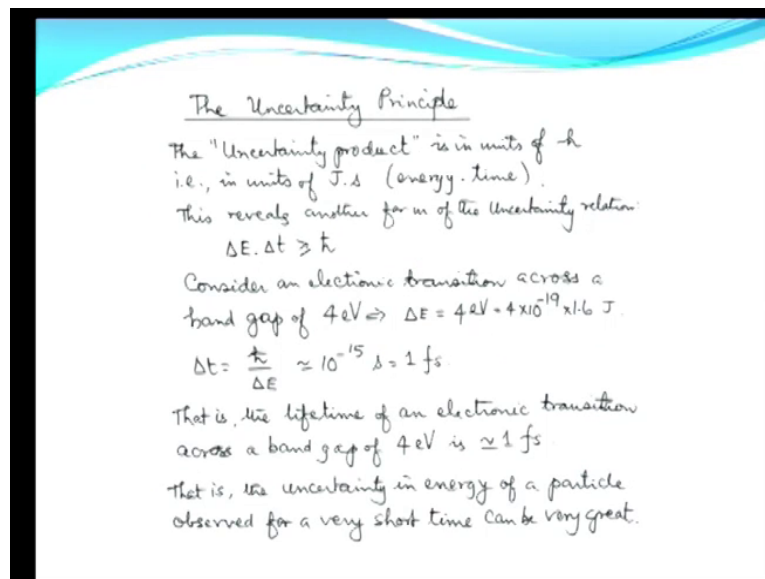 The Uncertainty Principle
The "Uncertainty product" is in units of h
i.e., in units of J.s (energy. time).
This reveals another form of the Uncertainty relation:
ΔE. Δt ≥ ħ
Consider an electronic transition across a
band gap of 4 eV ⇒ ΔE = 4 eV = 4 x10⁻¹⁹ x1.6 J.
Δt = ħ/ΔE ≃ 10⁻¹⁵ s = 1 fs.
That is, the lifetime of an electronic transition
across a band gap of 4 eV is ≃ 1 fs.
That is, the uncertainty in energy of a particle
observed for a very short time can be very great.